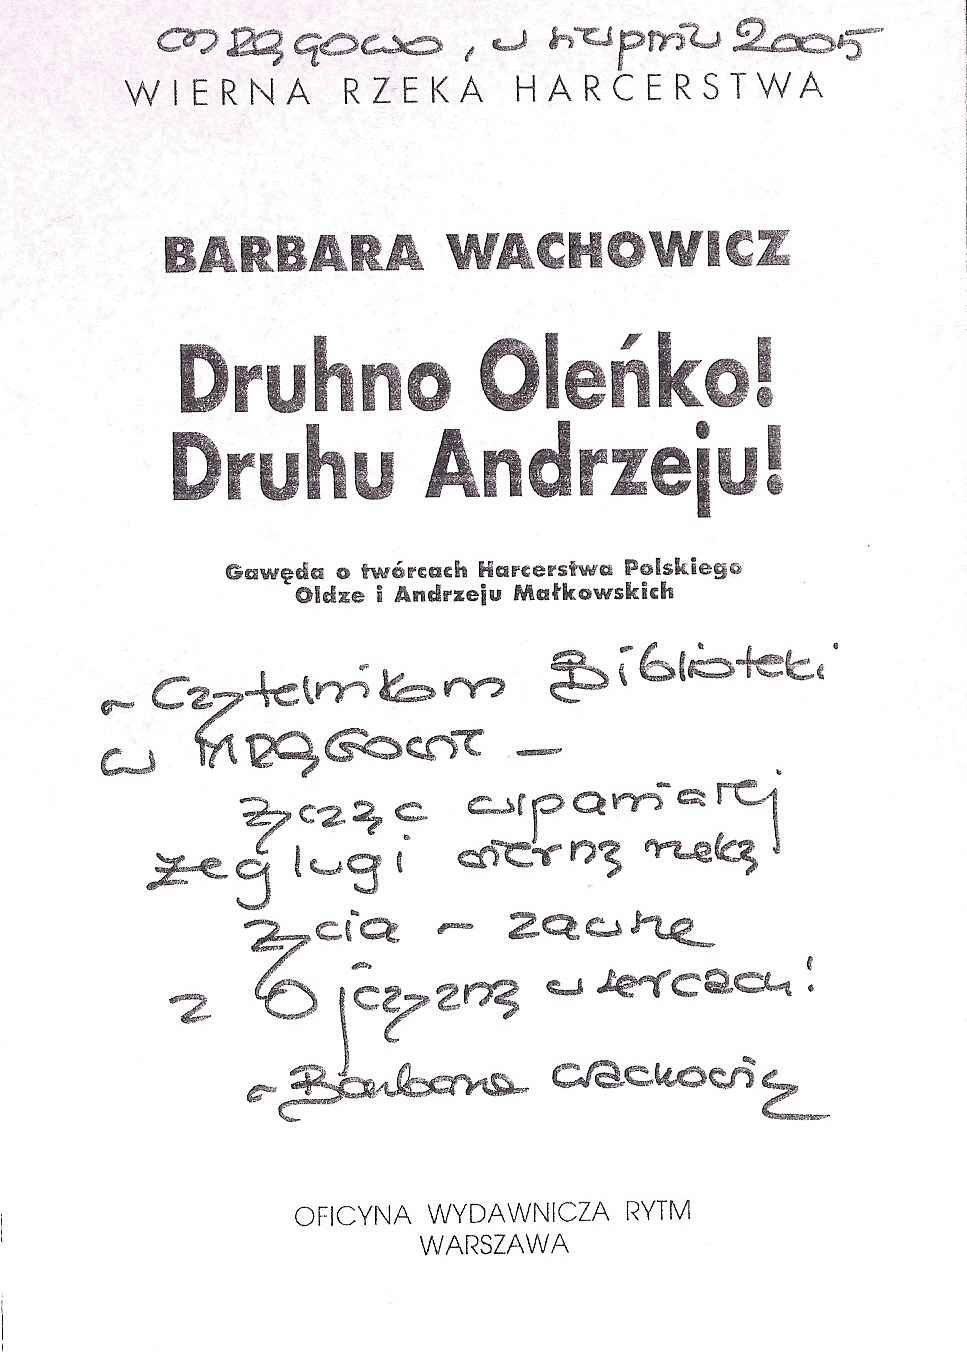 Mrągowo, w sierpniu 2005
WIERNA RZEKA HARCERSTWA
BARBARA WACHOWICZ
Druhno Oleńko!
Druhu Andrzeju!
Gawęda o twórcach Harcerstwa Polskiego
Oldze i Andrzeju Małkowskich
– Czytelnikom Biblioteki
w MRĄGOWIE –
życząc wspaniałej
żeglugi wierną rzeką
życia – zawsze
z Ojczyzną w sercach!
– Barbara Wachowicz
OFICYNA WYDAWNICZA RYTM
WARSZAWA